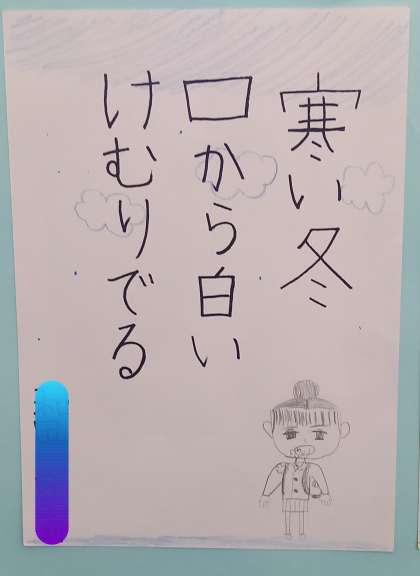 寒い冬
口から白い
けむりでる